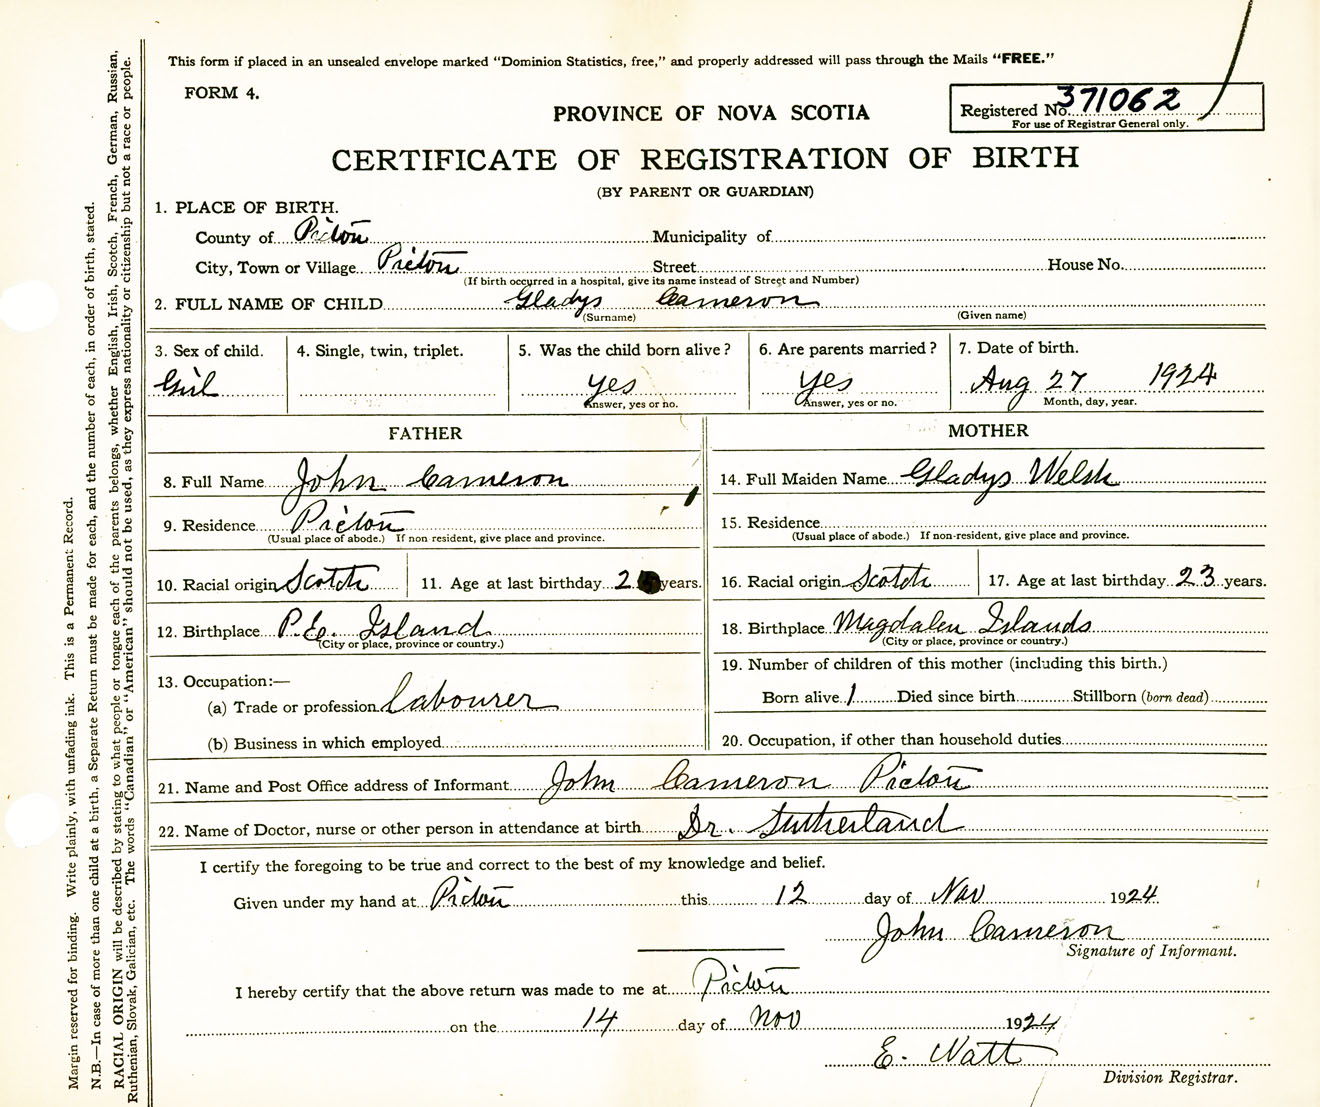 This form if placed in an unsealed envelope marked "Dominion Statistics, free," and properly addressed will pass through the Mails "FREE."
FORM 4.
PROVINCE OF NOVA SCOTIA
Registered No. 371062
For use of Registrar General only.
CERTIFICATE OF REGISTRATION OF BIRTH
(BY PARENT OR GUARDIAN)
1. PLACE OF BIRTH.
County of Pictou Municipality of
City, Town or Village Pictou Street House No.
(If birth occurred in a hospital, give its name instead of Street and Number)
2. FULL NAME OF CHILD Gladys Cameron
(Surname) (Given name)
3. Sex of child. 4. Single, twin, triplet. 5. Was the child born alive? 6. Are parents married? 7. Date of birth.
Girl yes yes Aug 27 1924
Answer, yes or no. Answer, yes or no. Month, day, year.
FATHER MOTHER
8. Full Name John Cameron
9. Residence Pictou
(Usual place of abode.) If non resident, give place and province.
10. Racial origin Scotch 11. Age at last birthday 2 years.
12. Birthplace P.E. Island
(City or place, province or country.)
13. Occupation:—
(a) Trade or profession Labourer
(b) Business in which employed
14. Full Maiden Name Gladys Welsh
15. Residence
(Usual place of abode.) If non-resident, give place and province.
16. Racial origin Scotch 17. Age at last birthday 23 years.
18. Birthplace Magdalen Islands
(City or place, province or country.)
19. Number of children of this mother (including this birth.)
Born alive 1 Died since birth Stillborn (born dead)
20. Occupation, if other than household duties
21. Name and Post Office address of Informant John Cameron Pictou
22. Name of Doctor, nurse or other person in attendance at birth Dr. Sutherland
I certify the foregoing to be true and correct to the best of my knowledge and belief.
Given under my hand at Pictou this 12 day of Nov 1924
John Cameron
Signature of Informant.
I hereby certify that the above return was made to me at Pictou
on the 14 day of Nov 1924
E. Natt
Division Registrar.
Margin reserved for binding. Write plainly, with unfading ink. This is a Permanent Record.
N.B.—In case of more than one child at a birth, a Separate Return must be made for each, and the number of each, in order of birth, stated.
RACIAL ORIGIN will be described by stating to what people or tongue each of the parents belongs, whether English, Irish, Scotch, French, German, Russian,
Ruthenian, Slovak, Galician, etc. The words "Canadian" or "American" should not be used, as they express nationality or citizenship but not a race or people.